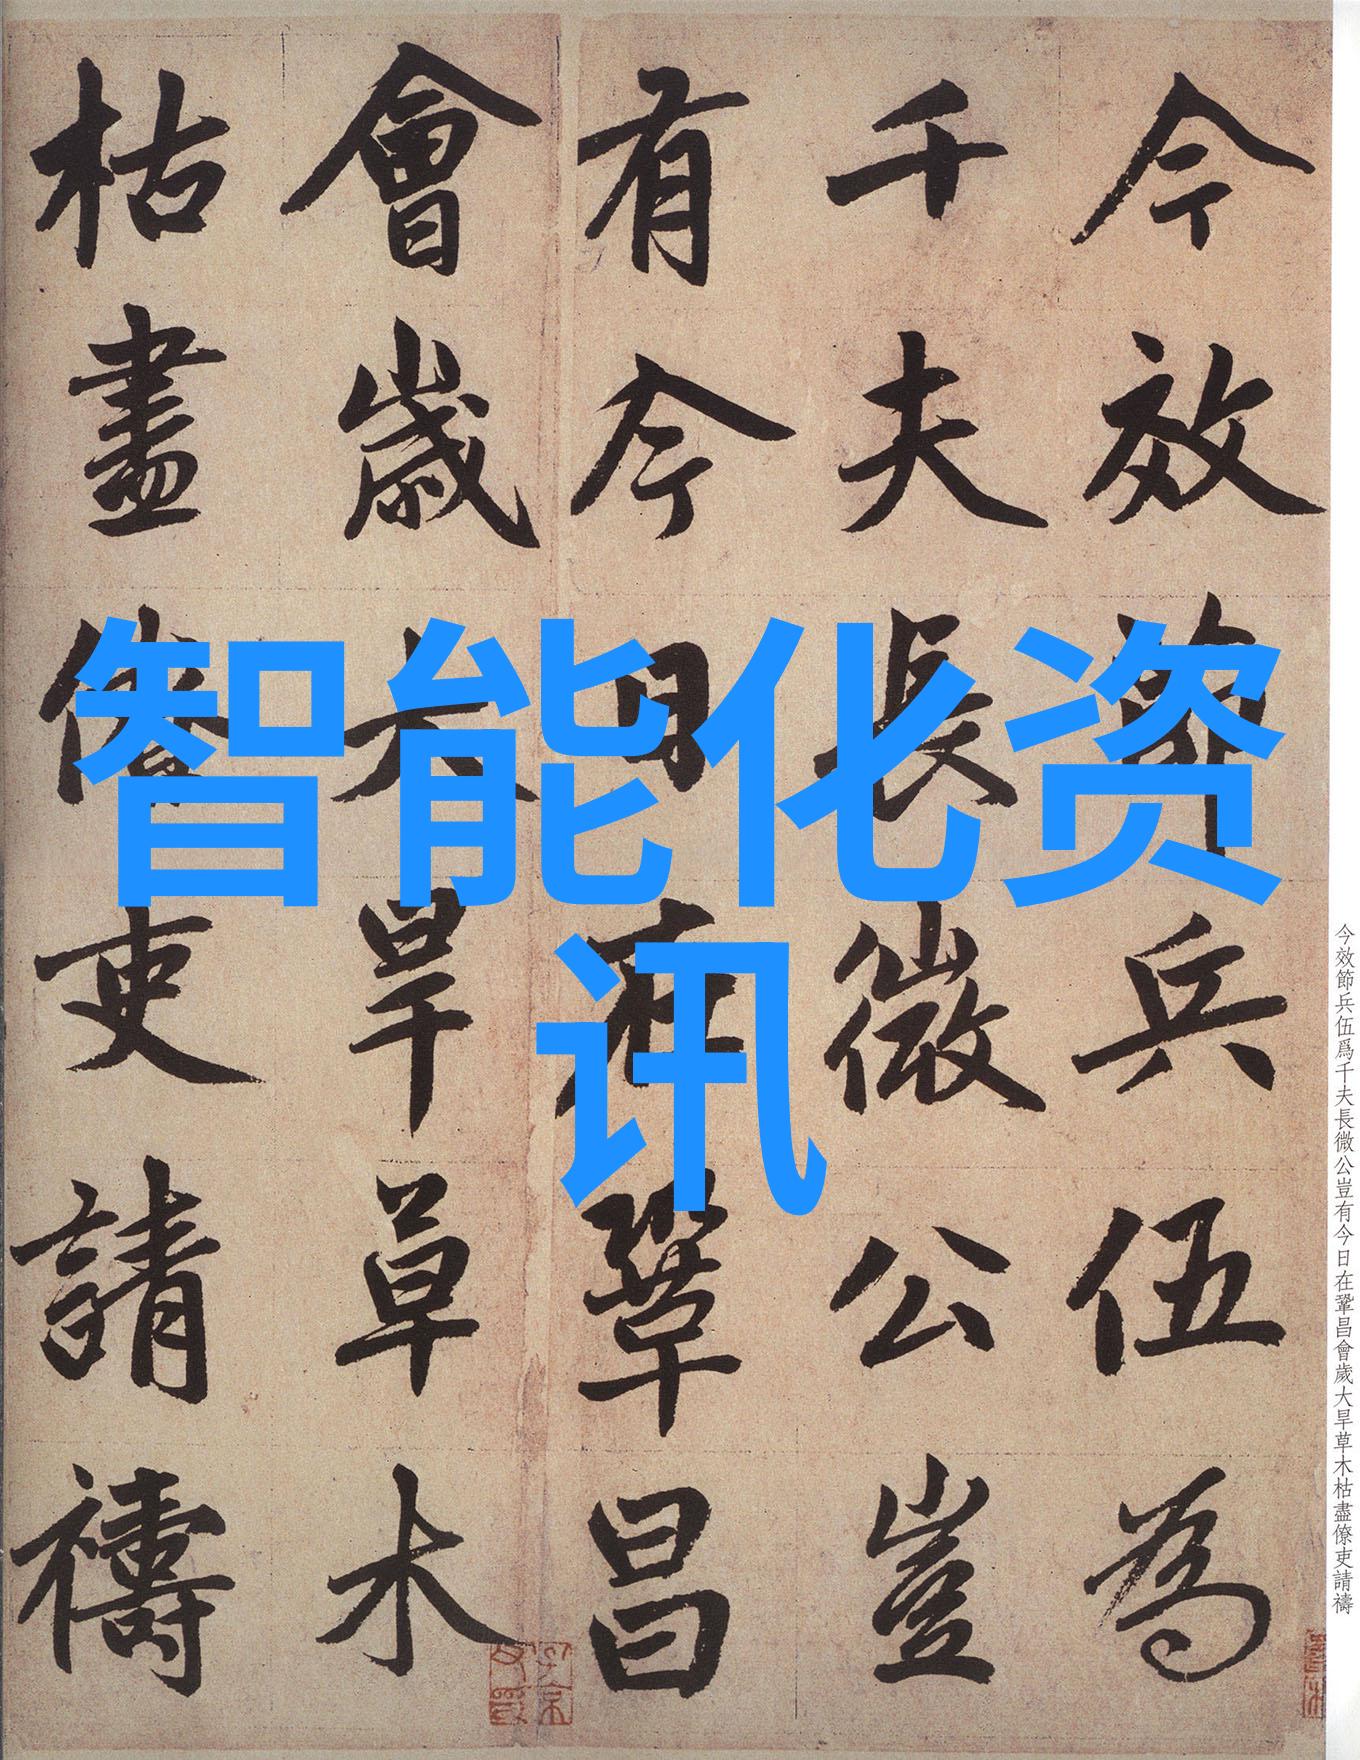 今效節兵伍為
千夫長微公豈
有今日在鞏昌
會歲大旱草木
枯盡僚吏請禱
智能化资
讯
今效節兵伍爲千夫長微公豈有今日在鞏昌會歲大旱草木枯盡僚吏請禱